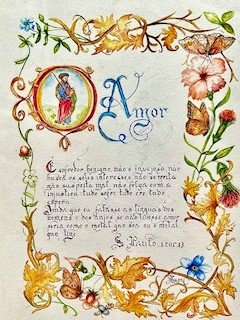 O
Amor
É sofredor, benigno, não é invejoso, não
busca os seus interesses não se irrita
não suspeita mal, não folga com a
injustiça, tudo sofre tudo crê tudo
espera.
Ainda que eu falasse as línguas dos
homens e dos Anjos, se não tivesse amor
seria como o metal que soa ou o metal
que tine.
S. Paulo, 1 cor 13